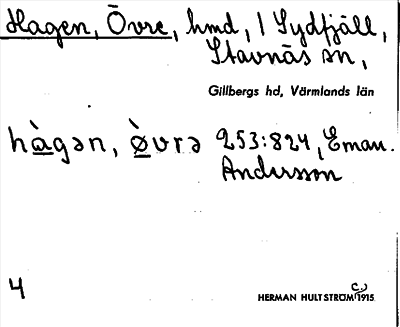 Hagen, Övre, hmd, / Sydfjäll,
Stavnäs sn,
Gillbergs hd, Värmlands län
hàgən, òvrə 253:824, Eman.
Andersson
4
HERMAN HULTSTRÖM C.) 1915